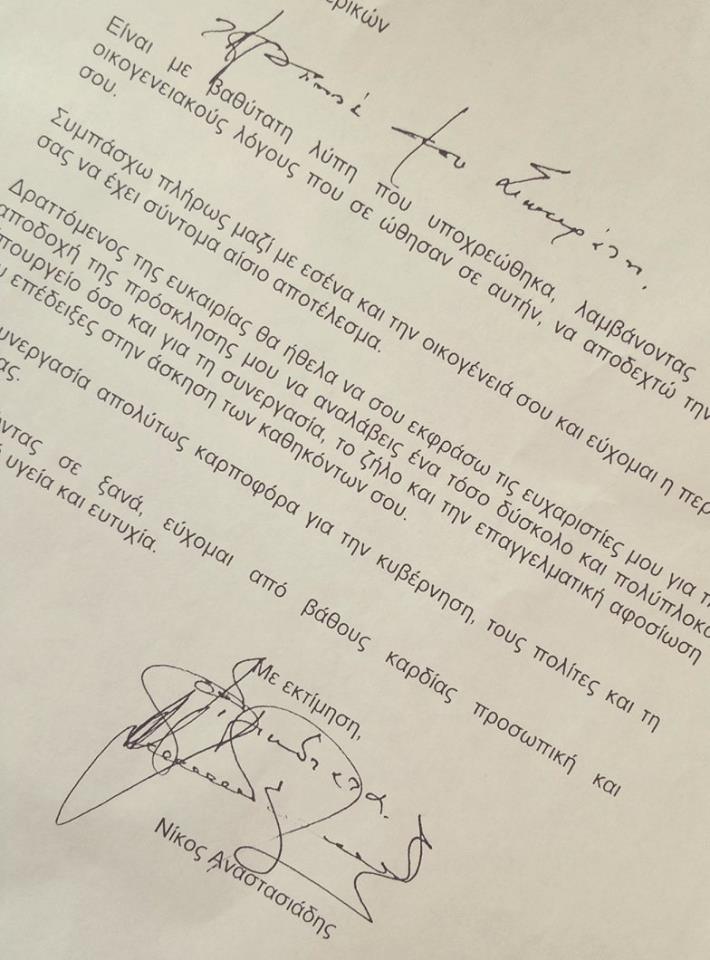 ερικών
μου Σωκράτη,
Είναι με βαθύτατη λύπη που υποχρεώθηκα, λαμβάνοντας
οικογενειακούς λόγους που σε ώθησαν σε αυτήν, να αποδεχτώ την
σου.
Συμπάσχω πλήρως μαζί με εσένα και την οικογένειά σου και εύχομαι η περ
σας να έχει σύντομα αίσιο αποτέλεσμα.
Δραττόμενος της ευκαιρίας θα ήθελα να σου εκφράσω τις ευχαριστίες μου για τ
αποδοχή της πρόσκλησης μου να αναλάβεις ένα τόσο δύσκολο και πολύπλοκο
πουργείο όσο και για τη συνεργασία, το ζήλο και την επαγγελματική αφοσίωση
υ επέδειξες στην άσκηση των καθηκόντων σου.
υνεργασία απολύτως καρποφόρα για την κυβέρνηση, τους πολίτες και τη
ας.
ντας σε ξανά, εύχομαι από βάθους καρδίας προσωπική και
υγεία και ευτυχία.
Με εκτίμηση,
Νίκος Αναστασιάδης